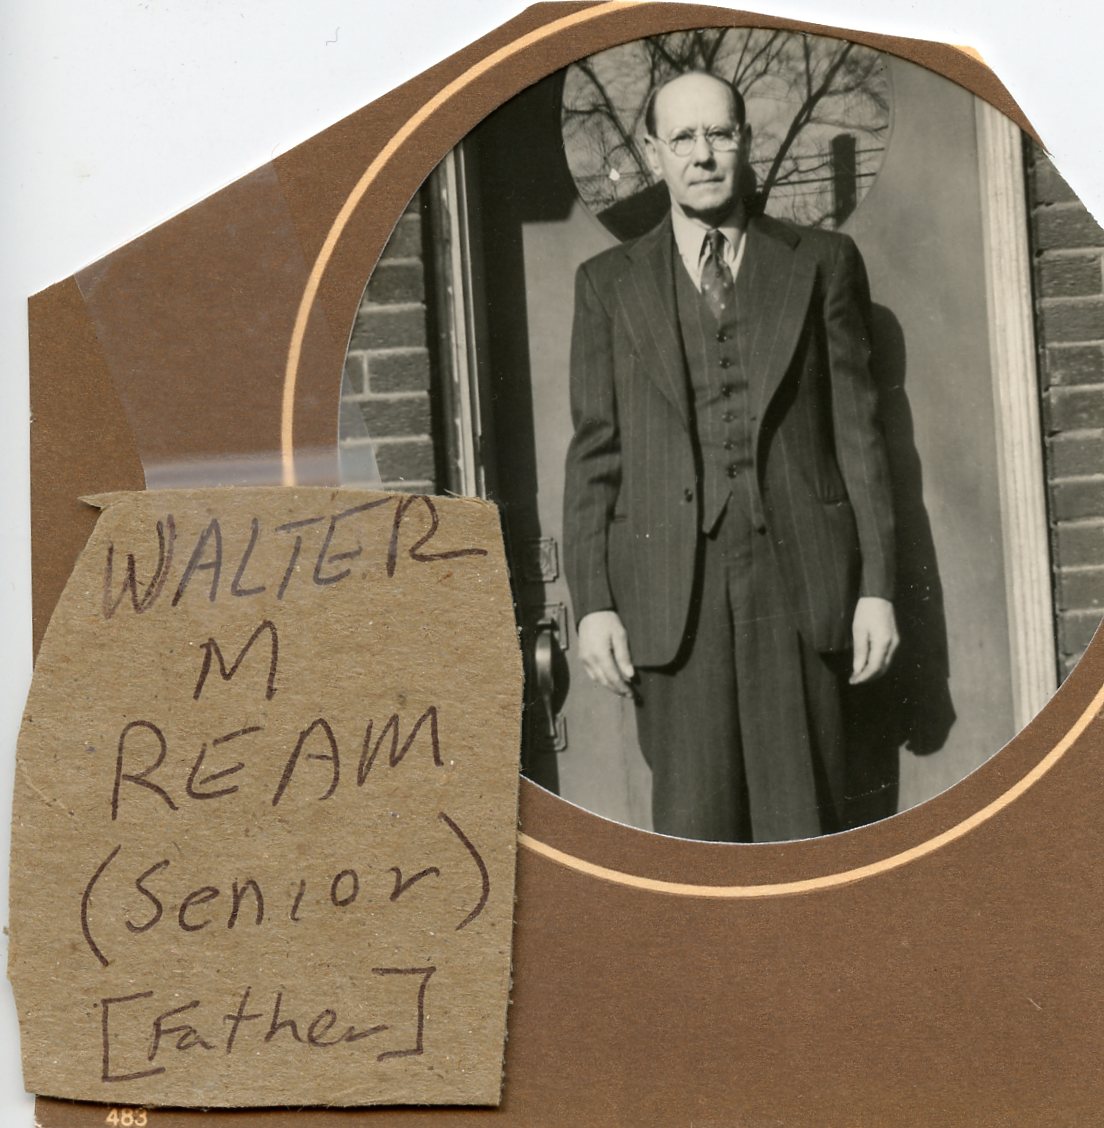 WALTER
M
REAM
(Senior)
[Father]
483